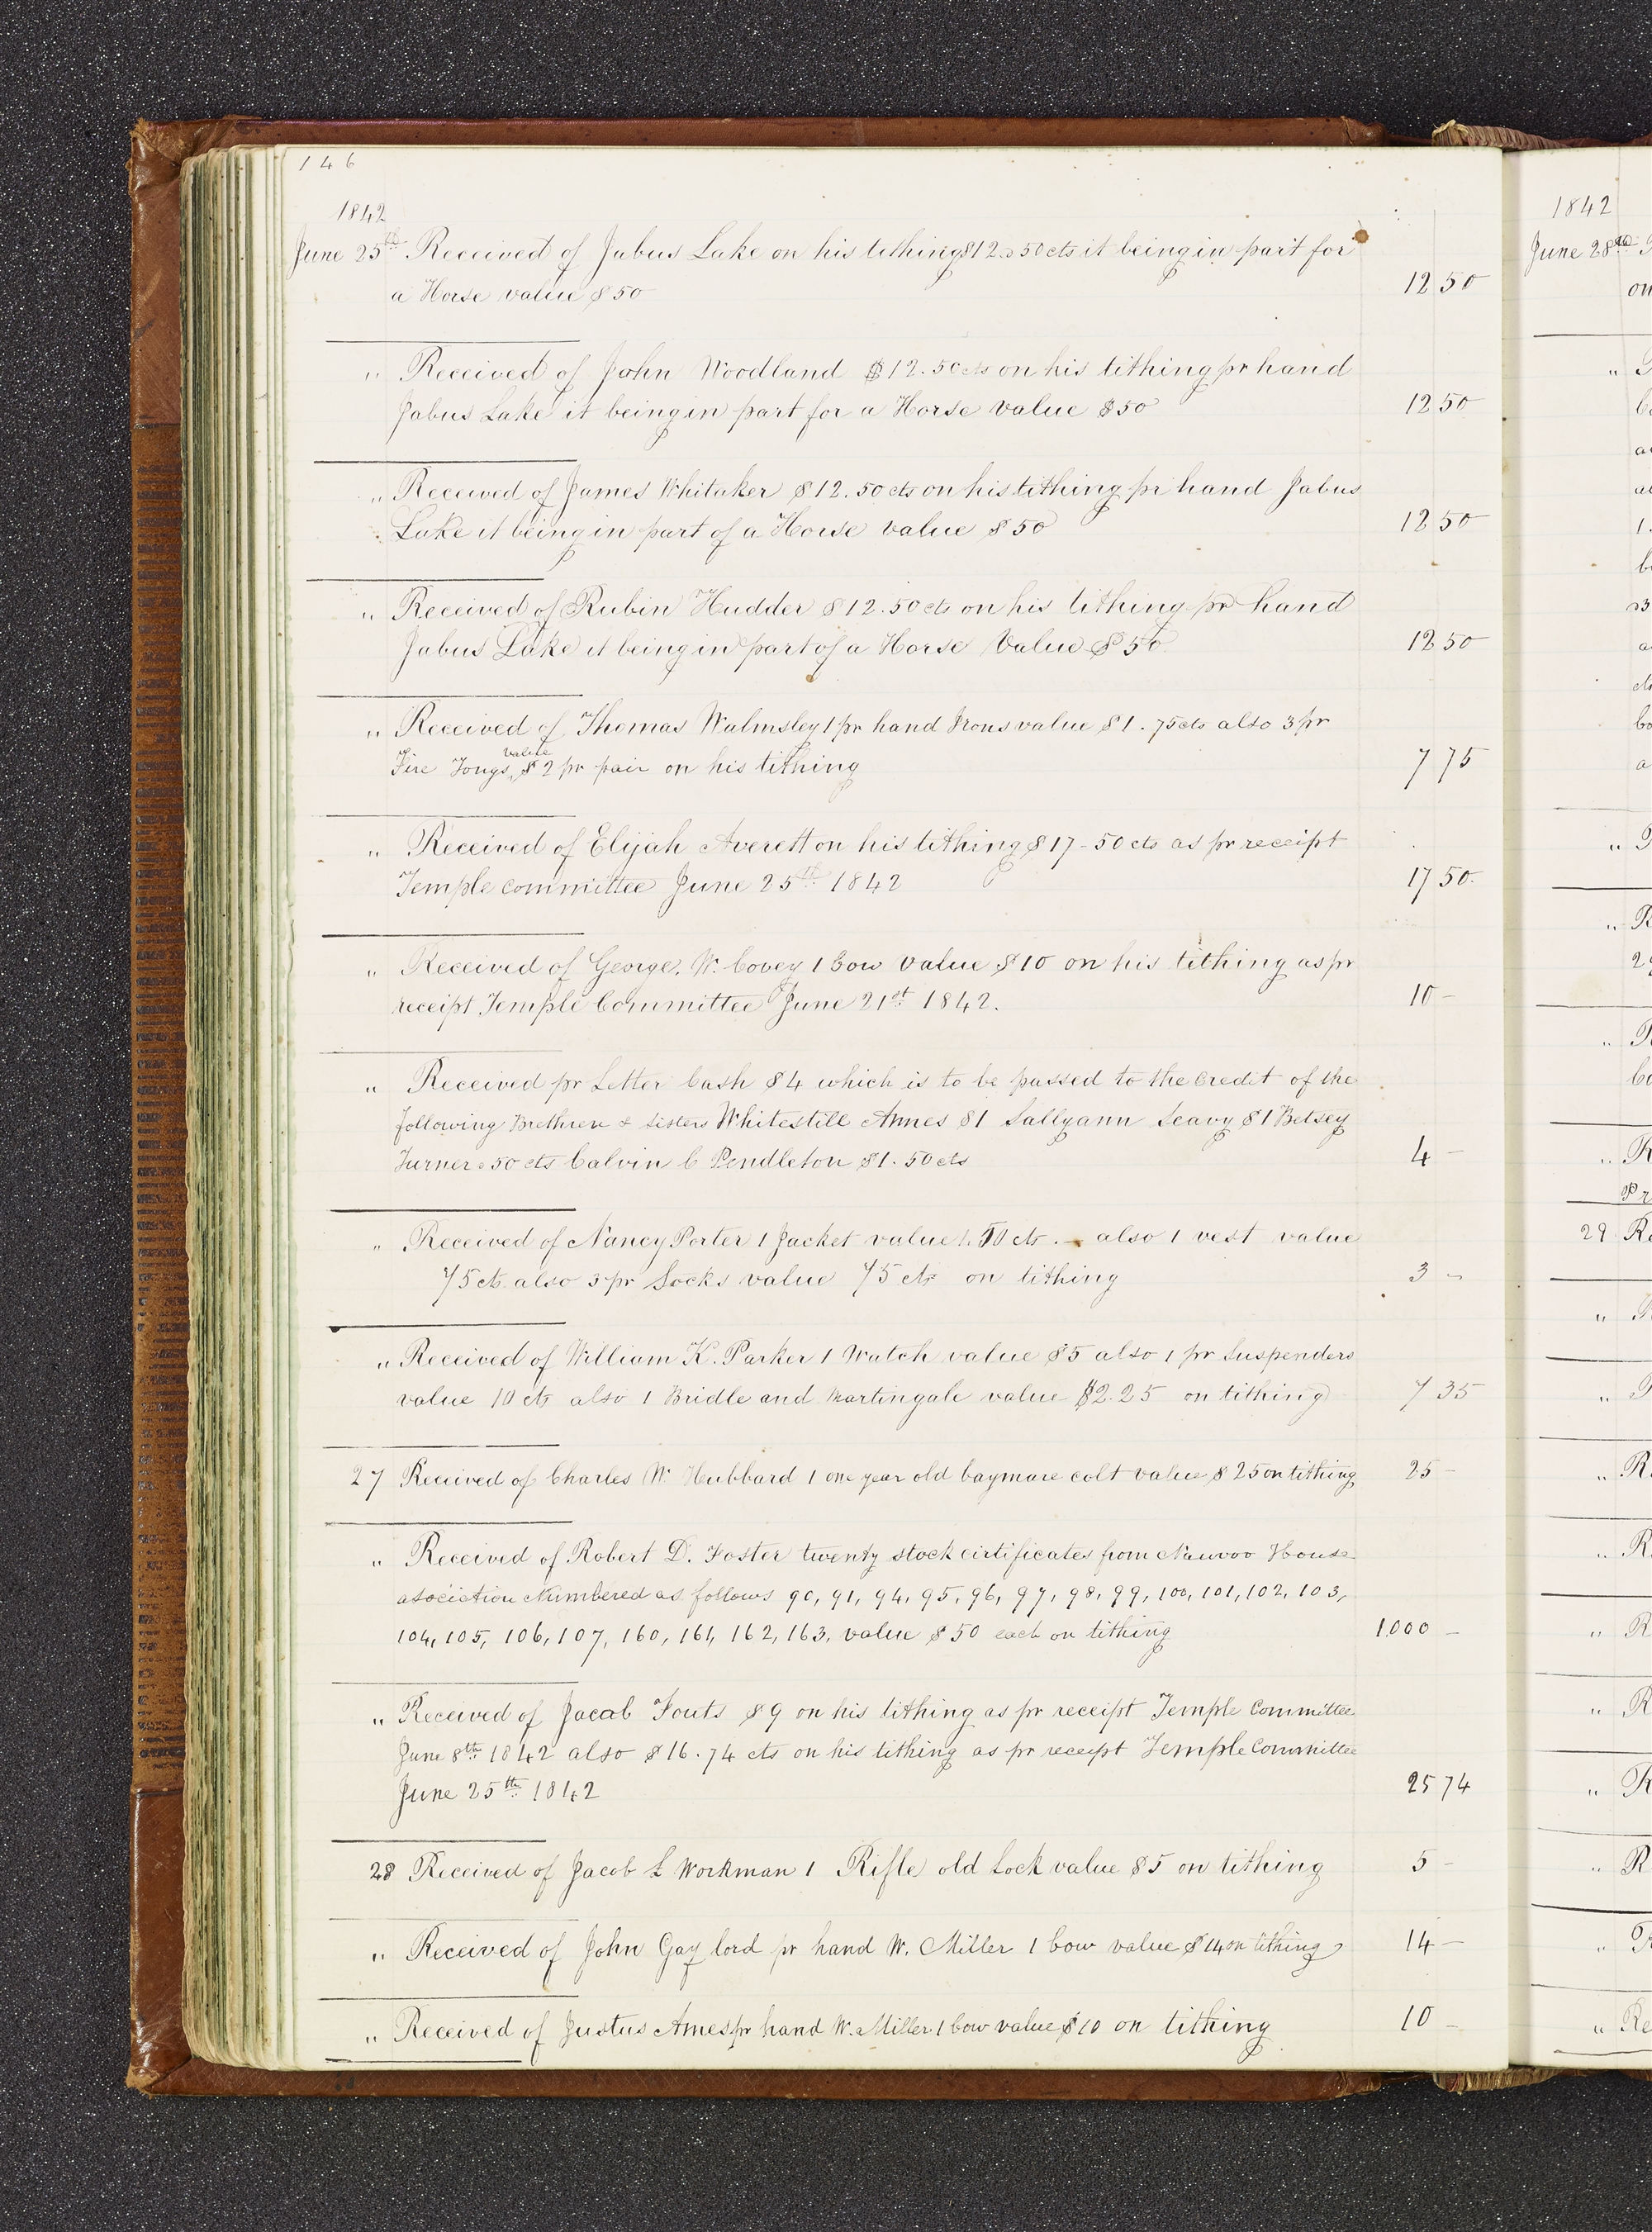 146
1842
June 25th Received of Jabus Lake on his tithing $12.50 cts it being in part for
a Horse value $50 12 50
" Received of John Woodland $12.50 cts on his tithing pr hand
Jabus Lake it being in part for a Horse value $50 12 50
" Received of James Whitaker $12.50 cts on his tithing pr hand Jabus
Lake it being in part of a Horse value $50 12 50
" Received of Rubin Hudder $12.50 cts on his tithing pr hand
Jabus Lake it being in part of a Horse Value $50 12 50
" Received of Thomas Walmsley 1 pr hand Irons value $1.75 cts also 3 pr
Fire Tongs value $2 pr pair on his tithing 7 75
" Received of Elijah Averett on his tithing $17-50 cts as pr receipt
Temple committee June 25th 1842 17 50.
" Received of George. W. Covey 1 Cow value $10 on his tithing as pr
receipt Temple Committee June 21st 1842. 10 -
" Received pr Letter Cash $4 which is to be passed to the credit of the
following Brethren & Sisters Whitestill Annes $1 Sallyann Seavy $1 Betsey
Turner .50 cts Calvin C Pendleton $1.50 cts 4 -
" Received of Nancy Porter 1 Jacket value 1.50 cts. - also 1 vest value
75 cts also 3 pr Socks value 75 cts on tithing 3 -
" Received of William K. Parker 1 Watch value $5 also 1 pr Suspenders
value 10 cts also 1 Bridle and Martingale value $2.25 on tithing 7 35
27 Received of Charles W. Hubbard 1 one year old bay mare colt value $25 on tithing 25 -
" Received of Robert D. Foster twenty stock cirtificates from Nauvoo House
asociation Numbered as follows 90, 91, 94, 95, 96, 97, 98, 99, 100, 101, 102, 103,
104, 105, 106, 107, 160, 161, 162, 163, value $50 each on tithing 1000 -
" Received of Jacob Fouts $9 on his tithing as pr receipt Temple Committee
June 8th 1842 also $16.74 cts on his tithing as pr receipt Temple Committee
June 25th 1842 25 74
28 Received of Jacob L Workman 1 Rifle old Lock value $5 on tithing 5 -
" Received of John Gaylord pr hand W. Miller 1 Cow value $14 on tithing 14 -
" Received of Justus Ames pr hand W. Miller 1 Cow value $10 on tithing 10 -
1842
June 28th
29